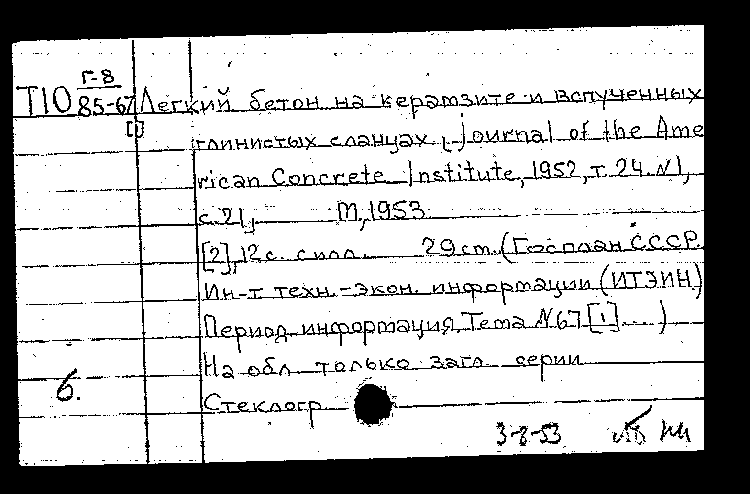 Г-8
Т10 85-67 Легкий бетон на керамзите и вспученных
[1] глинистых сланцах. (Journal of the Ame
rican Concrete Institute, 1952, т. 24. №1,
с. 21, М, 1953
[2], 12 с. с илл. 29 cm. (Госплан СССР.
Ин-т техн.-экон. информации (ИТЭИН)
Период. информация, Тема №67 [1] ... )
На обл. только загл. серии
6.
Стеклогр
3-8-53